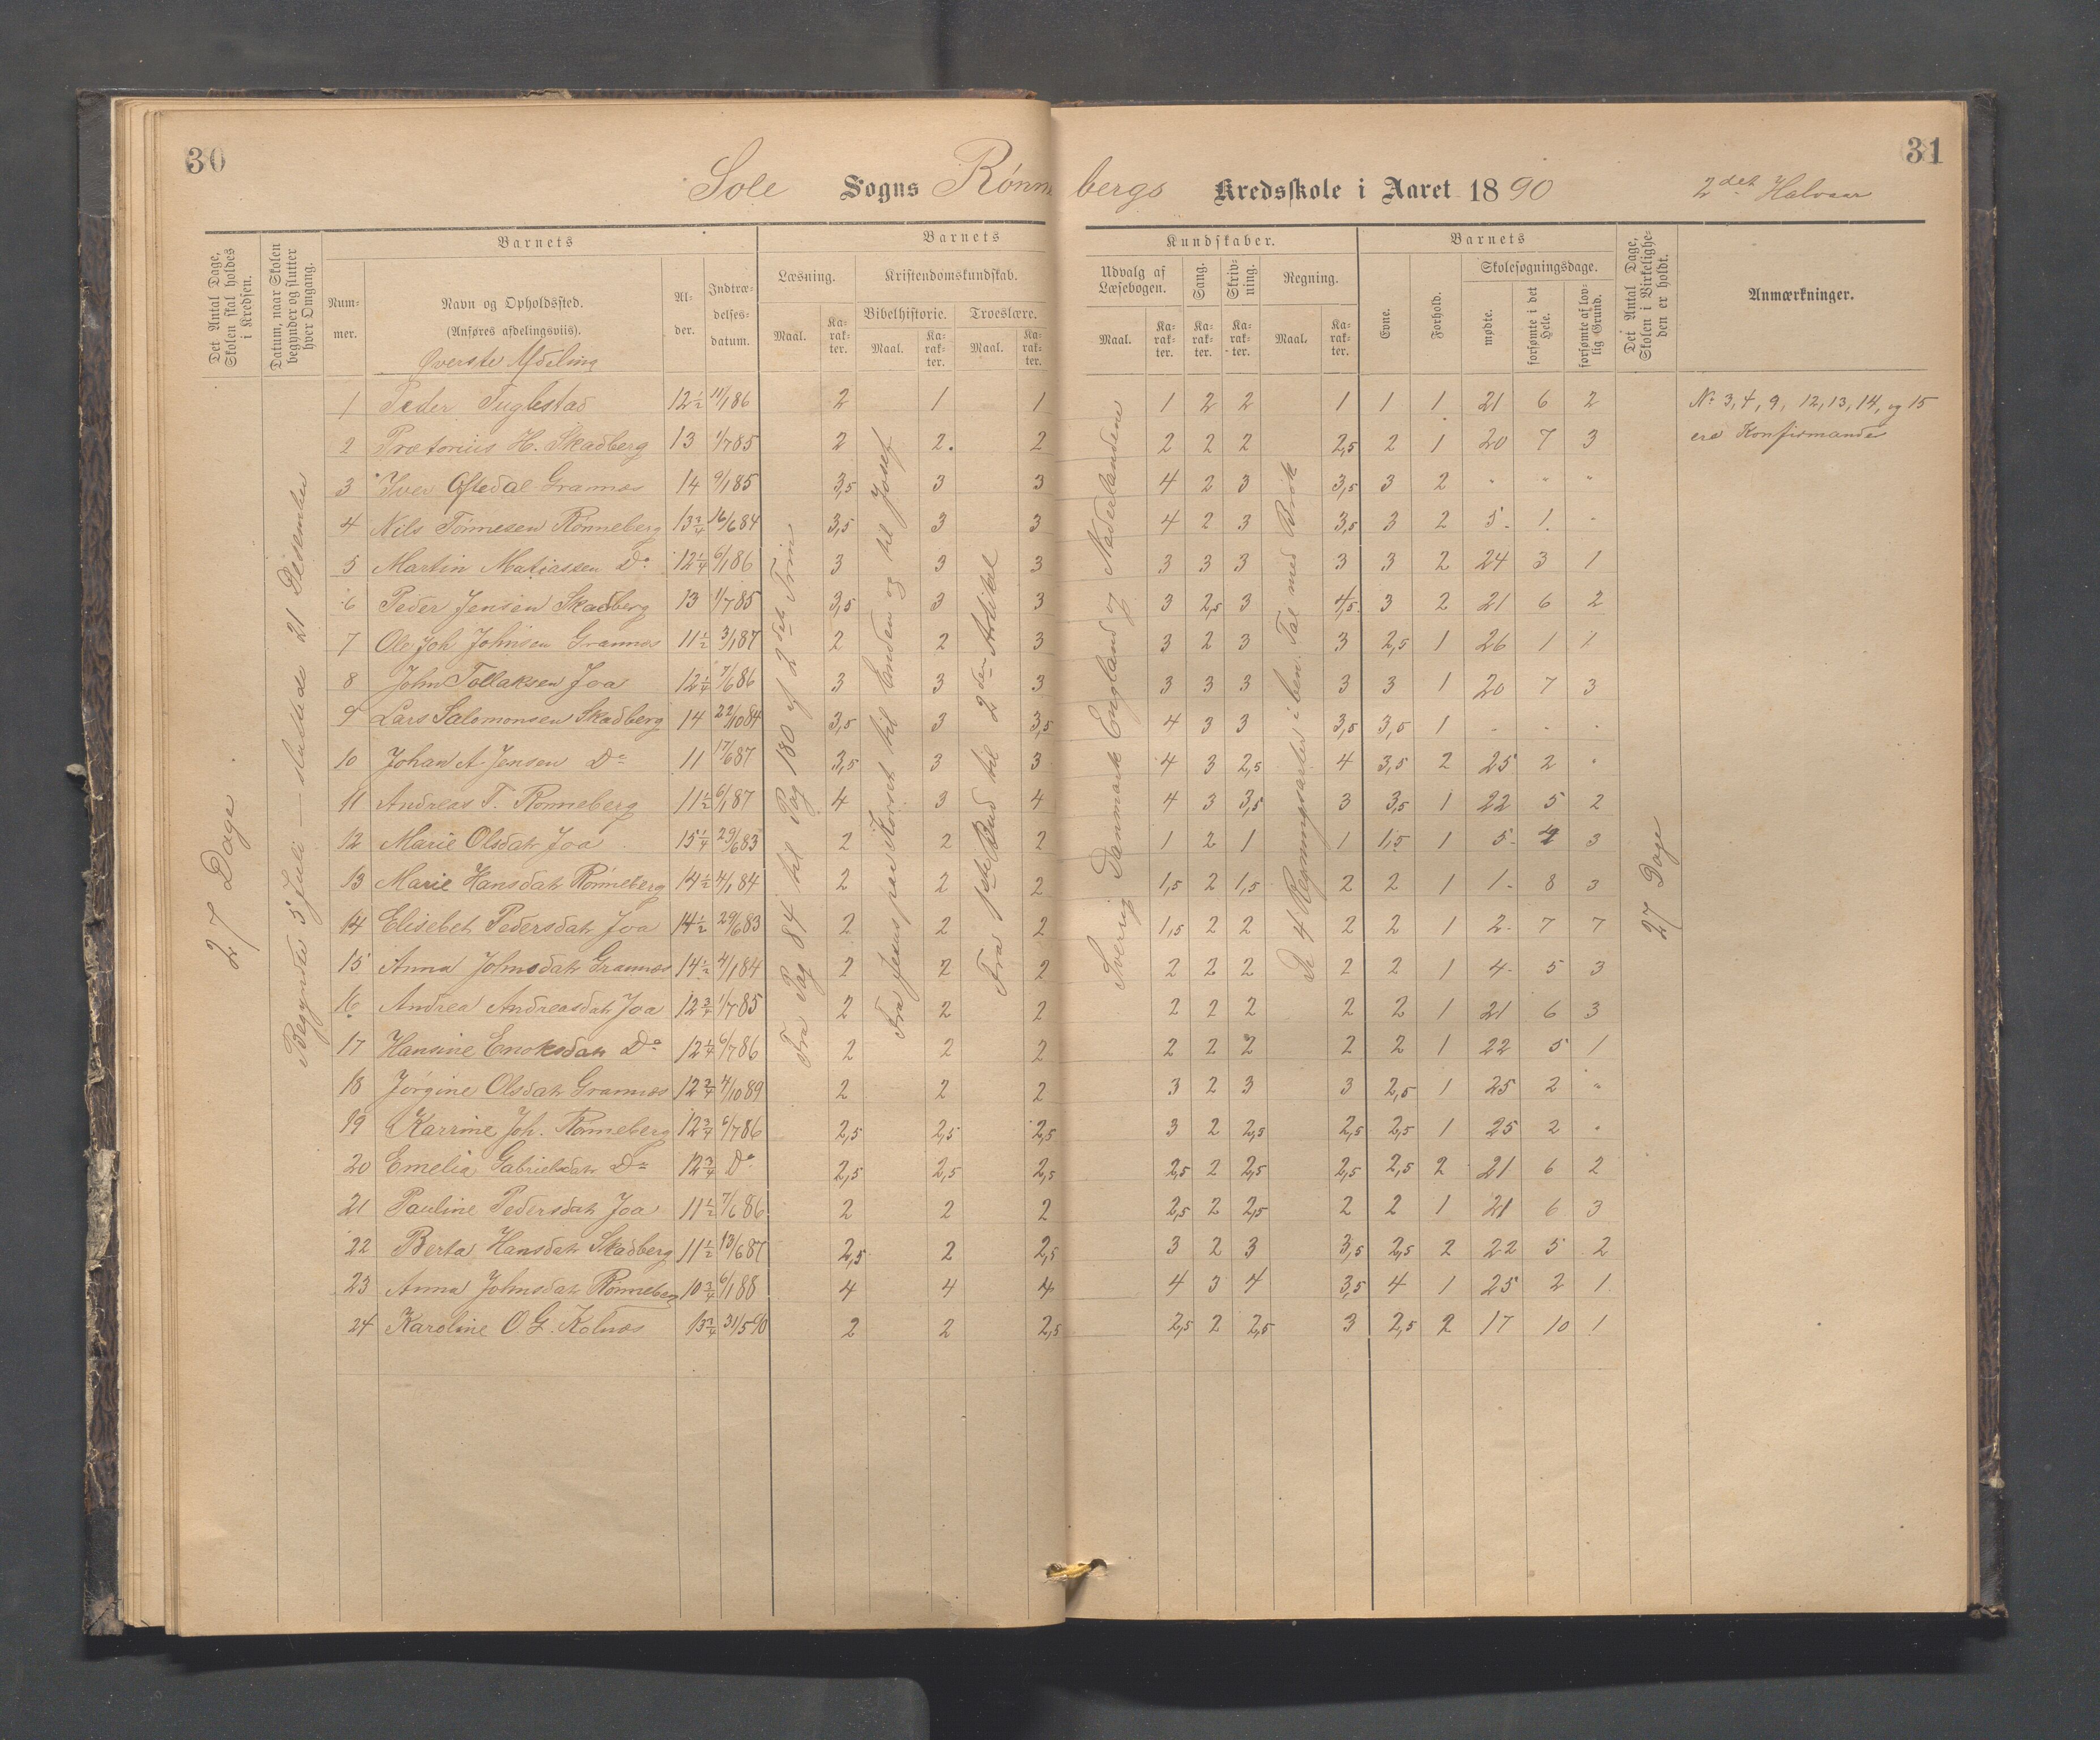 30
31
Sole Sogns Rønnebergs Kredsskole i Aaret 1890 2det Halvaar
Det Antal Dage, Skolen skal holdes i Kredsen.
Datum, naar Skolen begynder og slutter hver Omgang.
Barnets
Nummer.
Navn og Opholdssted.
(Anføres afdelingsviis).
Øverste Afdeling
Alder.
Indtrædelsesdatum.
Barnets Kundskaber.
Læsning.
Maal.
Karakter.
Kristendomskundskab.
Bibelhistorie.
Maal.
Karakter.
Troeslære.
Maal.
Karakter.
Udvalg af Læsebogen.
Maal.
Karakter.
Sang.
Karakter.
Skrivning.
Karakter.
Regning.
Maal.
Karakter.
Barnets
Evne.
Forhold.
Skolesøgningsdage.
mødte.
forsømte i det Hele.
forsømte af lovlig Grund.
Det Antal Dage, Skolen i Virkeligheden er holdt.
Anmærkninger.
27 Dage
Begyndte 5 Juli — sluttede 21 Desember
Fra Pag 84 til Pag 180 af 2det Trin
Fra Jesus paa Korset til Enden og til Josef
Fra 1ste Bud til 2den Artikel
Sverig Danmark England og Nederlandene
De 4 Regningsarter i ben. Tal med Brøk
27 Dage
1 Peder Fuglestad 12½ 11/1 86 2 1 1 1 2 2 1 1 1 21 6 2 No 3, 4, 9, 12, 13, 14, og 15
2 Prætorius H. Skadberg 13 1/7 85 2 2. 2 2 2 2 2,5 2 1 20 7 3 ere Konfirmander
3 Iver Oftedal Grannes 14 9/1 85 3,5 3 3 4 2 3 3,5 3 2 " " "
4 Nils Tørresen Rønneberg 13¾ 16/6 84 3,5 3 3 4 2 3 3,5 3 2 5 1 "
5 Martin Matiassen Do 12¼ 6/1 86 3 3 3 3 3 3 3 3 2 24 3 1
6 Peder Jensen Skadberg 13 1/7 85 3,5 3 3 3 2,5 3 4,5 3 2 21 6 2
7 Ole Joh Johnsen Grannes 11½ 3/1 87 2 2 3 3 2 3 3 2,5 1 26 1 1
8 John Tollaksen Joa 12¼ 7/6 86 3 3 3 3 3 3 3 3 1 20 7 3
9 Lars Salomonsen Skadberg 14 22/10 84 3,5 3 3,5 4 3 3 3,5 3,5 1 - - -
10 Johan A. Jensen Do 11 17/6 87 3,5 3 3 4 3 2,5 4 3,5 2 25 2 "
11 Andreas T. Rønneberg 11½ 6/1 87 4 3 4 4 3 3,5 3 3,5 1 22 5 2
12 Marie Olsdatr Joa 15¼ 29/6 83 2 2 2 1 2 1 1 1,5 1 5 9 3
13 Marie Hansdatr Rønneberg 14½ 4/1 84 2 2 2 1,5 2 1,5 2 2 1 1 8 3
14 Elisebet Pedersdatr Joa 14½ 29/6 83 2 2 2 1,5 2 2 2 2 1 2 7 7
15 Anna Johnsdatr Grannes 14½ 4/1 84 2 2 2 2 2 2 2 2 1 4 5 3
16 Andrea Andreasdatr Joa 12¾ 1/7 85 2 2 2 2 2 2 2 2 1 21 6 3
17 Hansine Enoksdatr Do 12¼ 6/7 86 2 2 2 2 2 2 2 2 1 22 5 1
18 Jørgine Olsdatr Grannes 12¾ 4/10 89 2 2 2 3 2 3 3 2,5 1 25 2 "
19 Karrine Joh. Rønneberg 12¾ 6/7 86 2,5 2,5 2,5 3 2 2,5 2,5 2,5 1 25 2 "
20 Emelia Gabrielsdatr Do 12¾ Do 2,5 2,5 2,5 2,5 2 2,5 2,5 2,5 2 21 6 2
21 Pauline Pedersdatr Joa 11½ 7/6 86 2 2 2 2,5 2 2,5 2 2 1 21 6 3
22 Berta Hansdatr Skadberg 11½ 13/6 87 2,5 2 2,5 3 2 3 3,5 2,5 2 22 5 2
23 Anna Johnsdatr Rønneberg 10¾ 6/1 88 4 4 4 4 3 4 3,5 4 1 25 2 1
24 Karoline O. G. Kolnes 13¾ 31/5 90 2 2 2,5 2,5 2 2,5 3 2,5 2 17 10 1